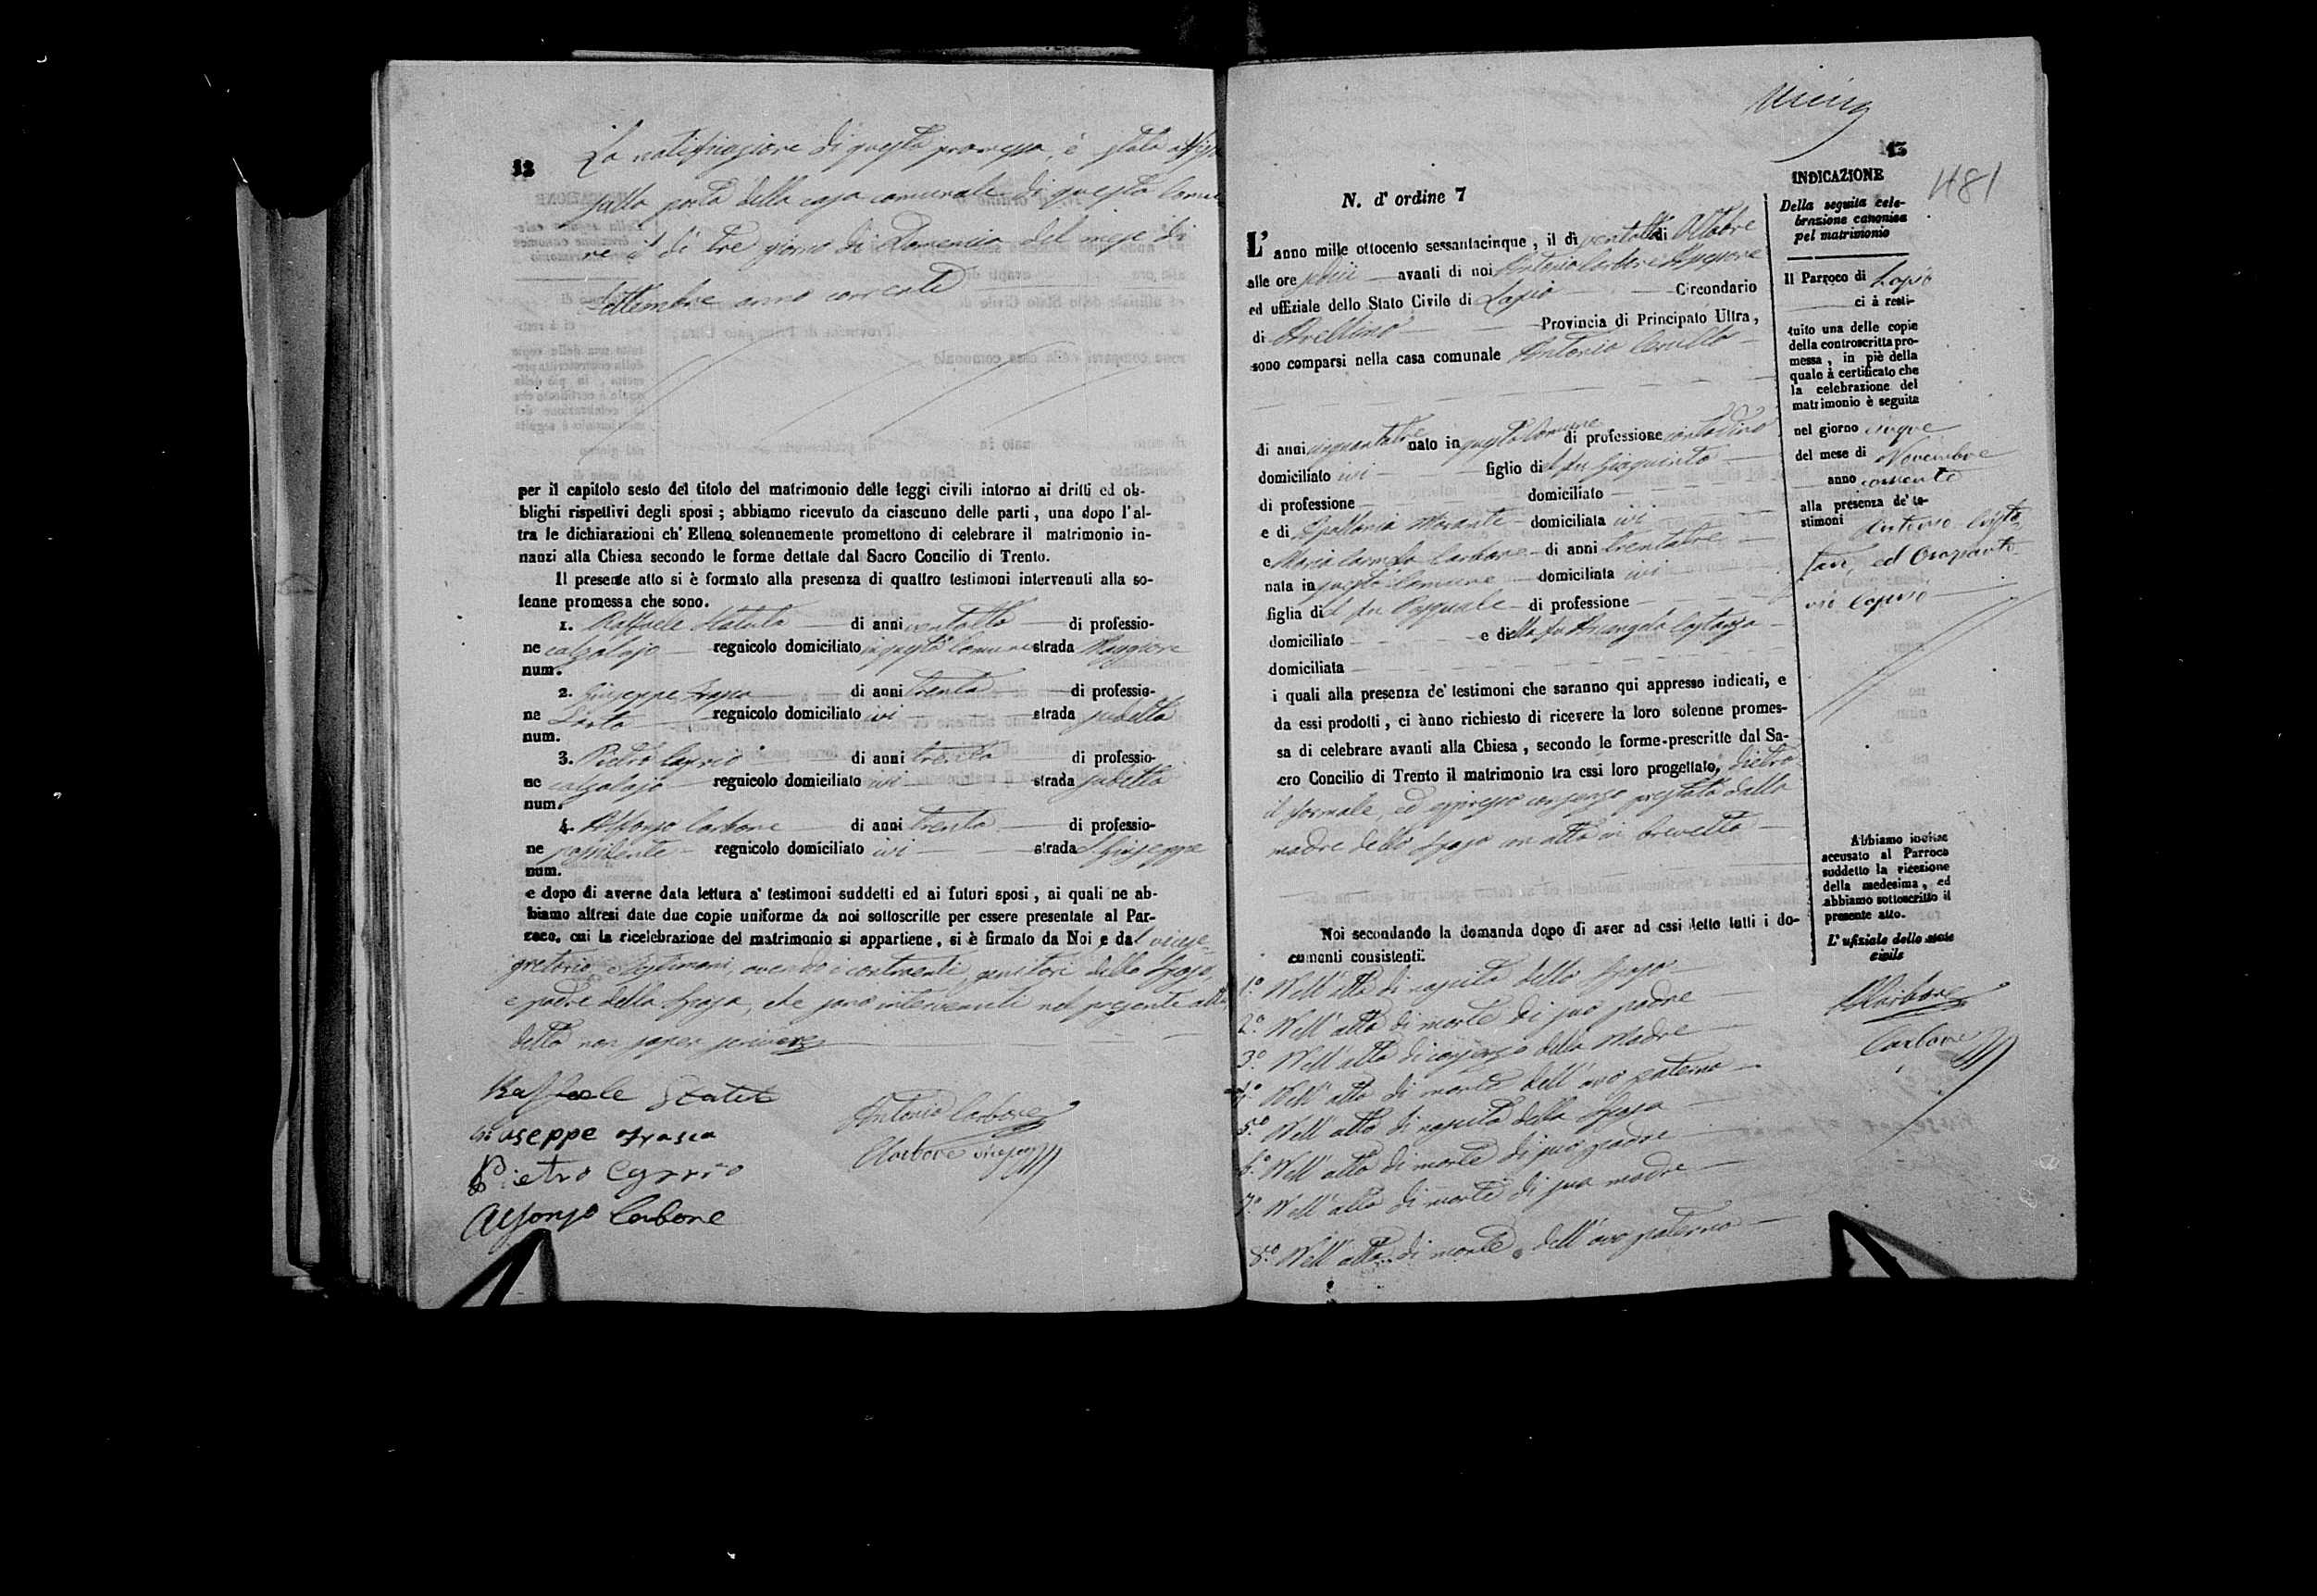 12
La notificazione di questa promessa, è stata affissa
sulla porta della casa comunale di questa Comu
ne a' dì tre giorno di Domenica del mese di
Settembre anno corrente
per il capitolo sesto del titolo del matrimonio delle leggi civili intorno ai dritti ed ob-
blighi rispettivi degli sposi ; abbiamo ricevuto da ciascuno delle parti , una dopo l'al-
tra le dichiarazioni ch' Elleno solennemente promettono di celebrare il matrimonio in-
nanzi alla Chiesa secondo le forme dettate dal Sacro Concilio di Trento.
Il presente atto si è formato alla presenza di quattro testimoni intervenuti alla so-
lenne promessa che sono.
1. Raffaele Statuto di anni ventotto di professio-
ne calzolajo regnicolo domiciliato in questo Comune strada Maggiore
num.
2. Giuseppe Frasca di anni trenta di professio-
ne Sarto regnicolo domiciliato ivi strada
num.
3. Pietro Caprio di anni trenta di professio-
ne calzolajo regnicolo domiciliato ivi strada
num.
4. Alfonso Carbone di anni trenta di professio-
ne possidente regnicolo domiciliato ivi strada S. Giuseppe
num.
e dopo di averne data lettura a' testimoni suddetti ed ai futuri sposi , ai quali ne ab-
biamo altresì date due copie uniforme da noi sottoscritte per essere presentate al Par-
roco, cui la ricelebrazione del matrimonio si appartiene , si è firmato da Noi e dal vicese-
gretario e testimoni, avendo i contraenti, genitori dello Sposo,
e padre della Sposa, che sono intervenuti nel presente atto
detto non saper scrivere
Raffaele Statuto
Giuseppe Frasca
Pietro Caprio
Alfonso Carbone
Antonio Carbone
Carbone
13
481
N. d' ordine 7
L' anno mille ottocento sessantacinque , il dì ventotto di Ottobre
alle ore avanti di noi Antonio Carbone Assessore
ed uffiziale dello Stato Civile di Lapio Circondario
di Avellino Provincia di Principato Ultra ,
sono comparsi nella casa comunale Antonio
di anni cinquantatre nato in questo Comune di professione contadino
domiciliato ivi figlio del fu Giaquinto
di professione domiciliato
e di Morante domiciliata ivi
e Maria Carmela Carbone di anni trentatre
nata in questo Comune domiciliata ivi
figlia del fu Pasquale di professione
domiciliato e di della fu Arcangela Costanza
domiciliata
i quali alla presenza de' testimoni che saranno qui appresso indicati, e
da essi prodotti , ci ànno richiesto di ricevere la loro solenne promes-
sa di celebrare avanti alla Chiesa , secondo le forme-prescritte dal Sa-
cro Concilio di Trento il matrimonio tra essi loro progettato, dietro
il formale, ed espresso consenso prestato dalla
madre dello Sposo con atto in brevetto
Noi secondando la domanda dopo di aver ad essi letto tutti i do-
cumenti consistenti:
1.º Nell' atto di nascita dello Sposo
2.º Nell' atto di morte di suo padre
3.º Nell' atto di consenso della Madre
4.º Nell' atto di morte dell' avo paterno
5.º Nell' atto di nascita della Sposa
6.º Nell' atto di morte di suo padre
7.º Nell' atto di morte di sua madre
8.º Nell' atto di morte dell' avo paterno
INDICAZIONE
Della seguita cele-
brazione canonica
pel matrimonio
Il Parroco di Lapio
ci à resti-
tuito una delle copie
della controscritta pro-
messa , in piè della
quale à certificato che
la celebrazione del
matrimonio è seguita
nel giorno cinque
del mese di Novembre
anno corrente
alla presenza de' te-
stimoni Antonio
ed
Caprio
Abbiamo inoltre
accusato al Parroco
suddetto la ricezione
della medesima , ed
abbiamo sottoscritto il
presente atto.
L' ufiziale dello stato
civile
Carbone
Carbone